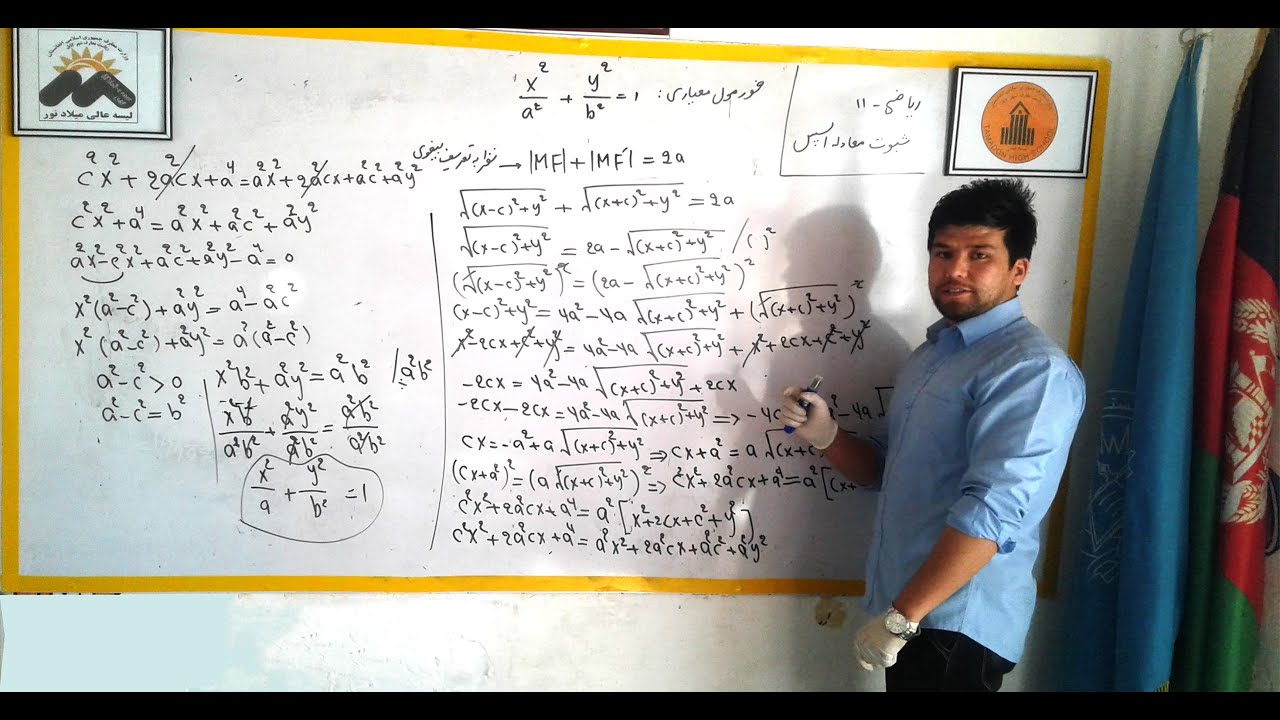 وزارت معارف جمهوری اسلامی افغانستان
لیسه عالی میلاد نور
TAMADON HIGH SCHOOL
ریاضی - ۱۱
ثبوت معادله الپس
فورمول معیاری: x²/a² + y²/b² = 1
نظر به تعریف بیضوی → |MF| + |MF'| = 2a
√(x-c)²+y² + √(x+c)²+y² = 2a
√(x-c)²+y² = 2a - √(x+c)²+y² / ( )²
(√(x-c)²+y²)² = (2a - √(x+c)²+y²)²
(x-c)²+y² = 4a² - 4a √(x+c)²+y² + (√(x+c)²+y²)²
x² - 2cx + c² + y² = 4a² - 4a √(x+c)²+y² + x² + 2cx + c² + y²
-2cx = 4a² - 4a √(x+c)²+y² + 2cx
-2cx - 2cx = 4a² - 4a √(x+c)²+y² ⇒ -4c a² - 4a √
cx = -a² + a √(x+c)²+y² ⇒ cx + a² = a √(x+c
(cx+a²)² = (a √(x+c)²+y²)² ⇒ c²x² + 2a²cx + a⁴ = a² [(x+
c²x² + 2a²cx + a⁴ = a² [x² + 2cx + c² + y²]
c²x² + 2a²cx + a⁴ = a²x² + 2a²cx + a²c² + a²y²
c²x² + 2a²cx + a⁴ = a²x² + 2a²cx + a²c² + a²y²
c²x² + a⁴ = a²x² + a²c² + a²y²
a²x² - c²x² + a²c² + a²y² - a⁴ = 0
x²(a²-c²) + a²y² = a⁴ - a²c²
x²(a²-c²) + a²y² = a²(a²-c²)
a² - c² > 0
a² - c² = b²
x²b² + a²y² = a²b² / a²b²
x²b²/a²b² + a²y²/a²b² = a²b²/a²b²
x²/a + y²/b² = 1